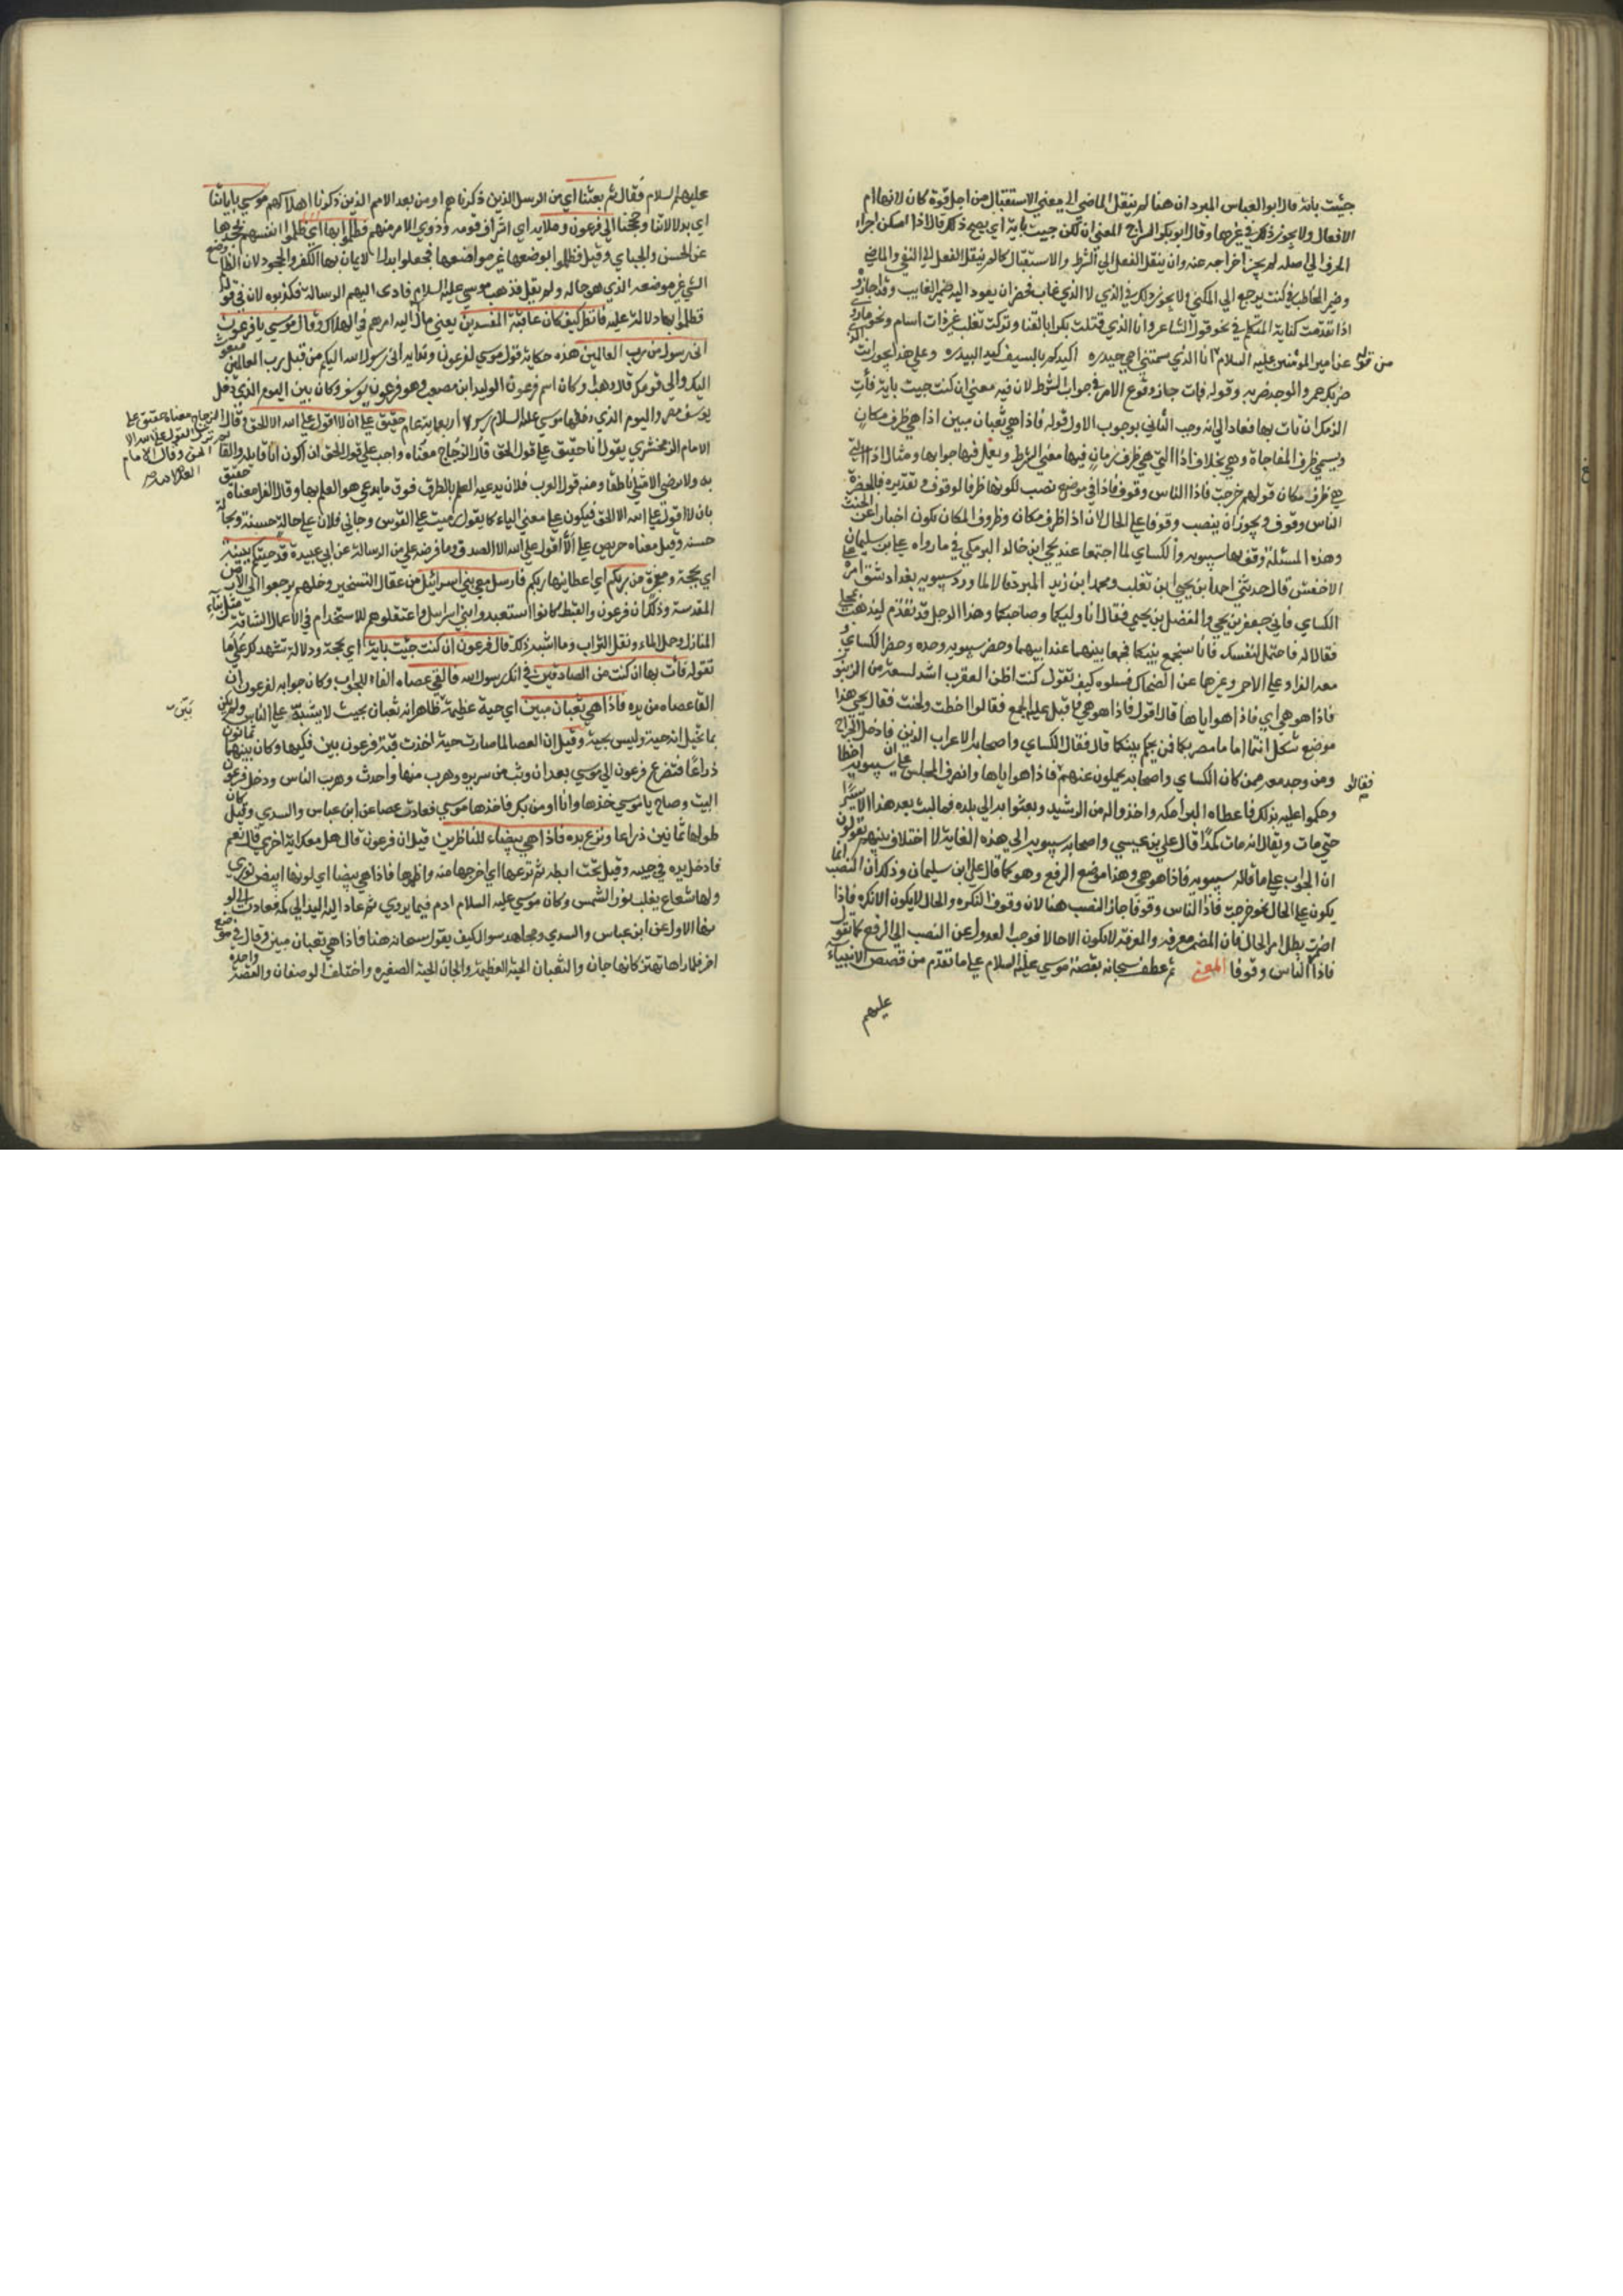 جيت باية قال ابو العباس المبرد ان هنا لم ينقل الماضي الى معني الاستقبال من اجل قوة كان لانها ام
الافعال ولا يجوز ذلك في غيرها وقال ابو بكر السراج المعني ان تكن جيت باية اي يصح ذلك قال لاذا امكن اجراء
الحرف الي اصله لم يجز اخراجه عنه وان ينقل الفعل الي الشرط والاستقبال كالم ينقل الفعل الي النفي والماضي
وضمير المخاطب في كنت يرجع الي المكني ولا يجوز ذلك في الذي لا الذي غاب فحقه ان يعود اليه ضمير الغايب وقد اجازوه
اذا تقدمت كناية المتكلم في نحو قول الشاعر وانا الذي قتلت بكرا بالقنا وتركت تغلب غير ذات سنام ونحو ماروي
من قول عن امير المؤمنين عليه السلام انا الذي سمتني امي حيدره اكيلكم بالسيف كيل السندره وعلي هذا يجوز انت الذي
ضربك عمرو والوجه ضربه وقوله فات جاز وقوع الامر في جواب الشرط لان فيه معني ان كنت جيت باية فأت
الزمك ان تات بها فعاد الي انه وجب الثاني بوجوب الاول قوله فاذا هي ثعبان مبين اذا هي ظرف مكان
ويسمي ظرف المفاجاة وهي بخلاف اذا التي هي ظرف زمان فيها معني الشرط ويعمل فيها جوابها ومثال اذا التي
هي ظرف مكان قولهم خرجت فاذا الناس وقوف فاذا في موضع نصب لكونها ظرفا لوقوف تقديره فبالحضرة
الناس وقوف ويجوز ان ينصب وقوفا علي الحال لان اذا ظرف مكان وظروف المكان تكون اخبارا عن الجثث
وهذه المسئلة وقف بها سيبويه والكساي لما اجتمعا عند يحيي ابن خالد البرمكي في ما رواه علي ابن سليمان
الاخفش قال حدثني احمد ابن يحيي ابن ثعلب ومحمد ابن زيد المبرد قالا لما ورد سيبويه بغداد شق امره علي
الكساي فاتي جعفر بن يحيي والفضل بن يحيي فقال انا وليكما وصاحبكما وهذا الرجل قد تقدم ليذهب بمحلي
فقالا له فاحتمل لنفسك فانا سنجمع بينكما فجمعا بينهما عند ابيهما وحضر سيبويه وحده وحضر الكساي و
معه الفراء وعلي الاحمر وغيرهما عن اصحابه فسلوه كيف تقول كنت اظن العقرب اشد لسعة من الزنبور
فاذا هو هي اي فاذا هو اياها قال اقول فاذا هو هي فاقبل عليه الجمع فقالوا اخطت ولحنت فقال يحيي هذا
موضع مشكل انتما اماما مصريكما فمن يحكم بينكما قال فقال الكساي واصحابه الاعراب الذين فادخل الجراح
فقالوا ومن وجد معه ممن كان الكساي واصحابه يحملون عنهم فاذا هو اياها وانصرف المجلس علي ان سيبويه اخطا
وحكموا عليه بذلك فاعطاه البرامكه واخذ واله من الرشيد وبعثوا به الي بلده فما لبث بعد هذا الا يسيرا
حتي مات ويقال انه مات كمدا قال علي بن عيسي واصحاب سيبويه الي هذه الغاية لا اختلاف بينهم يقولون
ان الجواب علي ما قاله سيبويه فاذا هو هي وهذا موضع الرفع وهو كما قال علي ابن سليمان وذلك ان النصب انما
يكون علي الحال نحو خرجت فاذا الناس وقوفا جاز النصب هنا لان وقوفا نكره والحال لا يكون الا نكره فاذا
اضمرت بطل امر الحال فان المضمر معرفه والمعرفة لا تكون الا حالا فوجب العدول عن النصب الي الرفع كما تقول
فاذا الناس وقوفا المعني ثم عطف سبحانه بقصة موسي عليه السلام علي ما تقدم من قصص الانبياء
عليهم
عليهم السلام فقال ثم بعثنا اي من الرسل الذين ذكرناهم او من بعد الامم الذين ذكرنا اهلاكهم موسي باياتنا
اي بدلالاتنا وحججنا الي فرعون وملايه اي اشراف قومه وذوي الامر منهم فظلموا بها اي ظلموا انفسهم بجحدها
عن الحسن والجباي وقيل فظلموا بوضعها غير مواضعها فجعلوا بدل الايمان بها الكفر والجحود لان الظلم وضع
الشي غير موضعه الذي هو حاله ولم يقل فذهب موسي عليه السلام فادى اليهم الرسالة فكذبوه لان في قوله
فظلموا بها دلالة عليه فانظر كيف كان عاقبة المفسدين يعني مال اليه امرهم في الهلاك وقال موسي يا فرعون
اني رسول من رب العالمين هذه حكاية قول موسي لفرعون ونداءه اني رسول الله اليكم من قبل رب العالمين مبعوث
اليك والي قومك قال وهب وكان اسم فرعون الوليد ابن مصعب وهو فرعون يوسف وكان بين اليوم الذي دخل
يوسف مصر واليوم الذي دخلها موسي عليه السلام رسولا اربعماية عام حقيق علي ان لا اقول علي الله الا الحق وقال
الزجاج معناه حقيق علي
ترك القول علي الله الا
الحق وقال الامام
العلامه
الامام الزمخشري يقول انا حقيق علي قول الحق قال الزجاج معناه واجب علي قول الحق ان اكون انا قايله والقايم
به ولا يرضي الا مثلي ناطقا ومنه قول العرب فلان يدعيه العلم بالطرف فوق ما يدعي هو العلم بها وقال الفرا معناه حقيق
بان لا اقول علي الله الا الحق فيكون علي معني الباء كما يقول رميت علي القوس وجاني فلان علي حالة حسنة وبحالة
حسنه وقيل معناه حريص علي الا اقول علي الله الا الصدق وما فرضه علي من الرسالة عن ابي عبيدة قد جيتكم ببينة
اي بحجة ومعجزة من ربكم اي اعطانيها ربكم فارسل معي بني اسرائيل من عقال التسخير وخلهم يرجعوا الي الارض
المقدسة وذلك ان فرعون والقبط كانوا استعبدوا بني اسرايل واعتقلوهم للاستخدام في الاعمال الشاقة مثل بناء
المنازل وحمل الماء ونقل التراب وما اشبه ذلك قال فرعون ان كنت جيت باية اي بحجة ودلالة تشهد لك علي ما
تقوله فات بها ان كنت من الصادقين في انك رسول الله فالقي عصاه الفاء للجواب وكان جوابه لفرعون ان
القا عصاه من يده فاذا هي ثعبان مبين اي حية عظيمة ظاهر انه ثعبان بحيث لا يشتبه علي الناس ولم يكن
بما تخيل انه حية وليس بحية وقيل ان العصا لما صارت حية اخذت قبة فرعون بين فكيها وكان بينهما ثمانون
ذراعا فتضرع فرعون الي موسي بعد ان وثب من سريره وهرب منها واحدث وهرب الناس ودخل فرعون
البيت وصاح يا موسي خذها وانا اومن بك فاخذها موسي فعادت عصا عن ابن عباس والسدي وقيل كان
طولها ثمانين ذراعا ونزع يده فاذا هي بيضاء للناظرين قيل ان فرعون قال هل معك اية اخري قال نعم
فادخل يده في جيبه وقيل تحت ابطه ثم نزعها اي اخرجها منه واظهرها فاذا هي بيضا اي لونها ابيض نوري
ولها شعاع يغلب نور الشمس وكان موسي عليه السلام ادم فيما يروي ثم عاد اليه اليد الي كمه فعادت الي لو
نها الاول عن ابن عباس والسدي ومجاهد سوال كيف يقول سبحانه هنا فاذا هي ثعبان مبين وقال في موضع
اخر فلما راها تهتز كانها جان والثعبان الحية العظيمة والجان الحية الصغيره واختلف الوصفان والقصة واحده